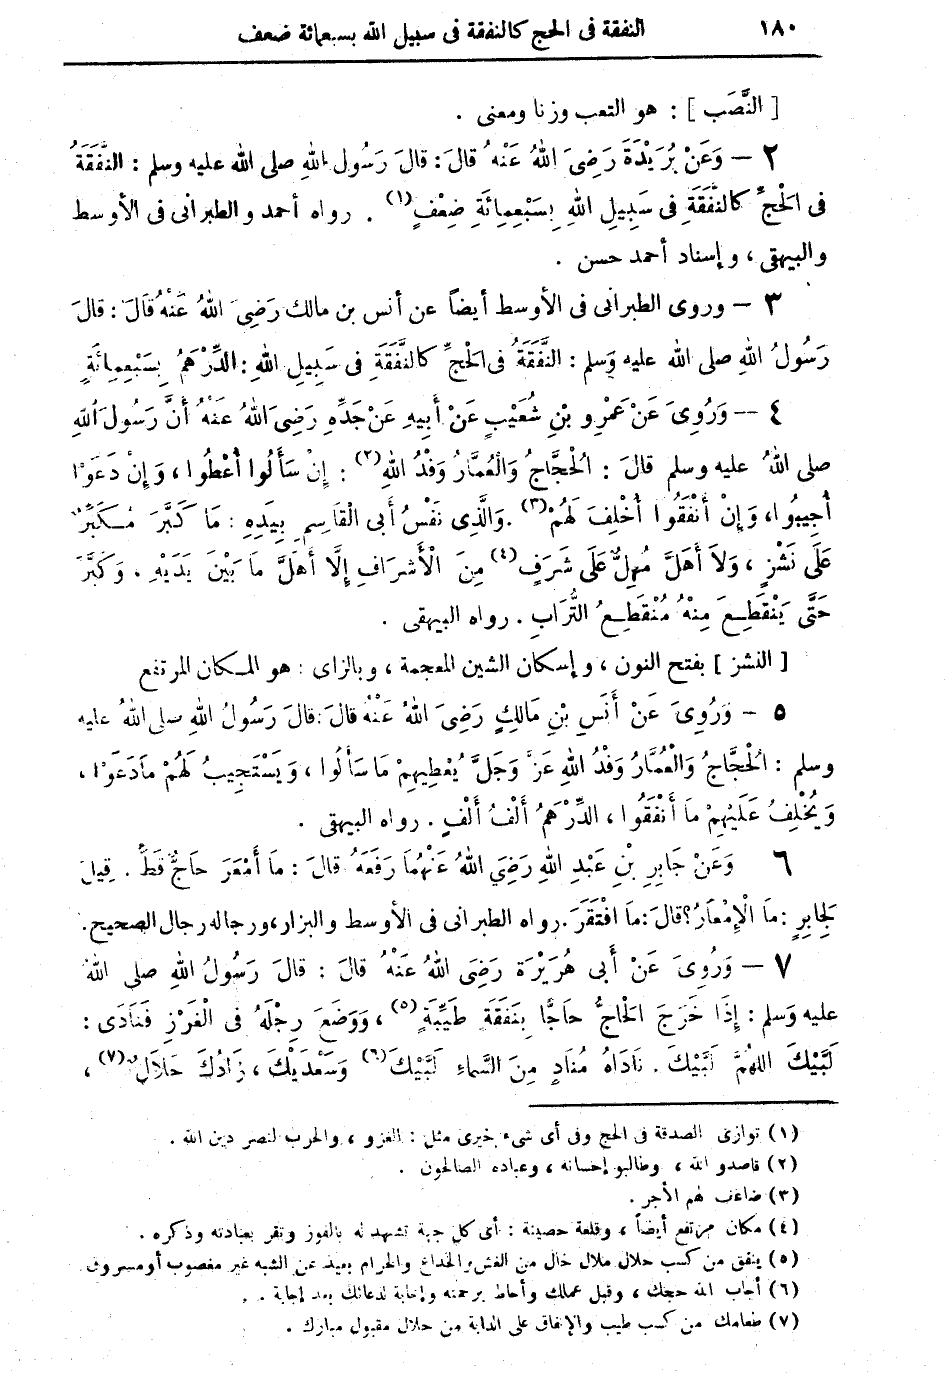 ١٨٠ النفقة فى الحج كالنفقة فى سبيل الله بسبعمائة ضعف
[ النَّصَب ] : هو التعب وزنا ومعنى .
٢ — وَعَنْ بُرَيْدَةَ رَضِىَ اللهُ عَنْهُ قَالَ : قَالَ رَسُول اللهِ صلى الله عليه وسلم : النَّفَقَةُ
فى الْحَجِّ كَالنَّفَقَةِ فى سَبِيلِ اللهِ بِسَبْعِمِائَةِ ضِعْفٍ (١) . رواه أحمد والطبرانى فى الأوسط
والبيهقى ، وإسناد أحمد حسن .
٣ — وروى الطبرانى فى الأوسط أيضاً عن أنس بن مالك رَضِىَ اللهُ عَنْهُ قَالَ : قَالَ
رَسُولُ اللهِ صلى الله عليه وَسلم : النَّفَقَةُ فى الْحَجِّ كَالنَّفَقَةِ فى سَبِيلِ اللهِ : الدِّرْهَمُ بِسَبْعِمِائَةٍ
٤ — وَرُوِىَ عَنْ عَمْرِو بْنِ شُعَيْبٍ عَنْ أَبِيهِ عَنْ جَدِّهِ رَضِىَ اللهُ عَنْهُ أَنَّ رَسُولَ اللهِ
صلى اللهُ عليه وسلم قَالَ : الْحُجَّاجُ وَالْعُمَّارُ وَفْدُ اللهِ (٢) : إِنْ سَأَلُوا أُعْطُوا ، وَإِنْ دَعَوْا
أُجِيبُوا ، وَإِنْ أَنْفَقُوا أُخْلِفَ لَهُمْ (٣) . وَالَّذِى نَفْسُ أَبى الْقَاسِمِ بِيَدِهِ : مَا كَبَّرَ مُكَبِّرٌ
عَلَى نَشْزٍ ، وَلاَ أَهَلَّ مُهِلٌّ عَلَى شَرَفٍ (٤) مِنَ الْأَشْرَافِ إِلَّا أَهَلَّ مَا بَيْنَ يَدَيْهِ . وَكَبَّرَ
حَتَّى يَنْقَطِعَ مِنْهُ مُنْقَطِعُ التُّرَابِ . رواه البيهقى .
[ النشز ] بفتح النون ، وإسكان الشين المعجمة ، وبالزاى : هو المكان المرتفع
٥ — وَرُوِىَ عَنْ أَنَسِ بْنِ مَالِكٍ رَضِىَ اللهُ عَنْهُ قَالَ : قَالَ رَسُولُ اللهِ صلى اللهُ عليه
وسلم : الْحُجَّاجُ وَالْعُمَّارُ وَفْدُ اللهِ عَزَّ وَجَلَّ يُعْطِيهِمْ مَا سَأَلُوا ، وَيَسْتَجِيبُ لَهُمْ مَا دَعَوْا ،
وَيُخْلِفُ عَلَيْهِمْ مَا أَنْفَقُوا ، الدِّرْهَمُ أَلْفُ أَلْفٍ . رواه البيهقى .
٦ وَعَنْ جَابِرِ بْنِ عَبْدِ اللهِ رَضِيَ اللهُ عَنْهُمَا رَفَعَهُ قَالَ : مَا أَمْعَرَ حَاجٌّ قَطُّ . قِيلَ
لِجَابِرٍ : مَا الْإِمْعَارُ ؟ قَالَ : مَا افْتَقَرَ . رواه الطبرانى فى الأوسط والبزار ، ورجاله رجال الصحيح .
٧ — وَرُوِىَ عَنْ أَبى هُرَيْرَةَ رَضِىَ اللهُ عَنْهُ قَالَ : قَالَ رَسُولُ اللهِ صلى اللهُ
عليه وَسلم : إِذَا خَرَجَ الْحَاجُّ حَاجًّا بِنَفَقَةٍ طَيِّبَةٍ (٥) ، وَوَضَعَ رِجْلَهُ فى الْغَرْزِ فَنَادَى :
لَبَّيْكَ اللهُمَّ لَبَّيْكَ . نَادَاهُ مُنَادٍ مِنَ السَّمَاءِ لَبَّيْكَ (٦) وَسَعْدَيْكَ ، زَادُكَ حَلَالٌ (٧) ،
(١) توازى الصدقة فى الحج وفى أى شىء خيرى مثل : الغزو ، والحرب لنصر دين الله .
(٢) قاصدو الله ، وطالبو إحسانه ، وعباده الصالحون .
(٣) ضاعف لهم الأجر .
(٤) مكان مرتفع أيضاً ، وقلعة حصينة : أى كل جهة تشهد له بالفوز وتقر بعبادته وذكره .
(٥) ينفق من كسب حلال ملال خال من الغش والخداع والحرام بعيد عن الشبه غير مغصوب أو مسروق
(٦) أجاب الله حجك ، وقبل عملك وأحاط برحمته وإجابة لدعائك بعد إجابة . .
(٧) طعامك من كسب طيب والإنفاق على الدابة من حلال مقبول مبارك .